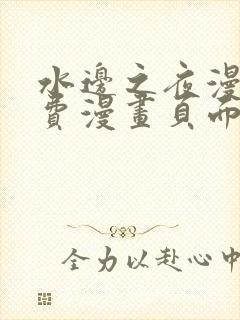 水邊之夜漫
費漫畫頁面
全力以赴心中